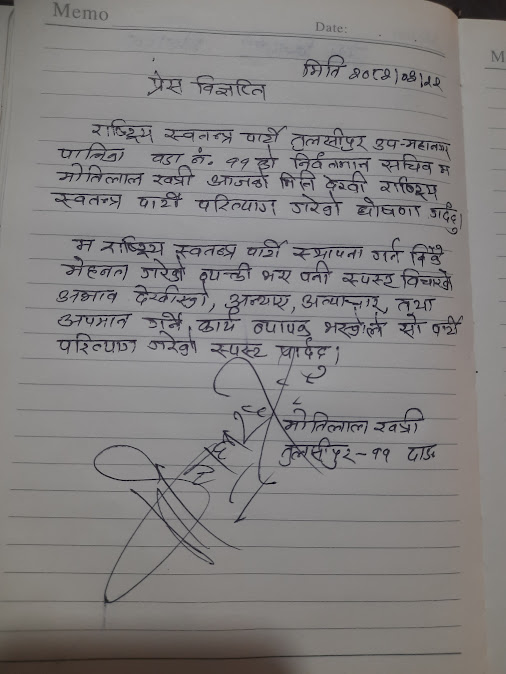 Memo
Date:
M
मिति २०८२/०३/२२
प्रेस विज्ञप्ति
राष्ट्रिय स्वतन्त्र पार्टी तुलसीपुर उप-महानगर
पालिका वडा नं. ११ को निर्वतमान सचिव म
मोतिलाल खत्री आजको मिति देखी राष्ट्रिय
स्वतन्त्र पार्टी परित्याग गरेको घोषणा गर्दछु।
म राष्ट्रिय स्वतन्त्र पार्टी स्थापना गर्न
मेहनत गरेको व्यक्ती भए पनी स्पस्ट विचारको
अभाव देखीएको, अन्याए, अत्याचार, तथा
अपमान गर्ने कार्य व्यापक भएकोले सो पार्टी
परित्याग गरेको स्पस्ट पार्दछु।
मोतिलाल खत्री
तुलसीपुर-११ दाङ